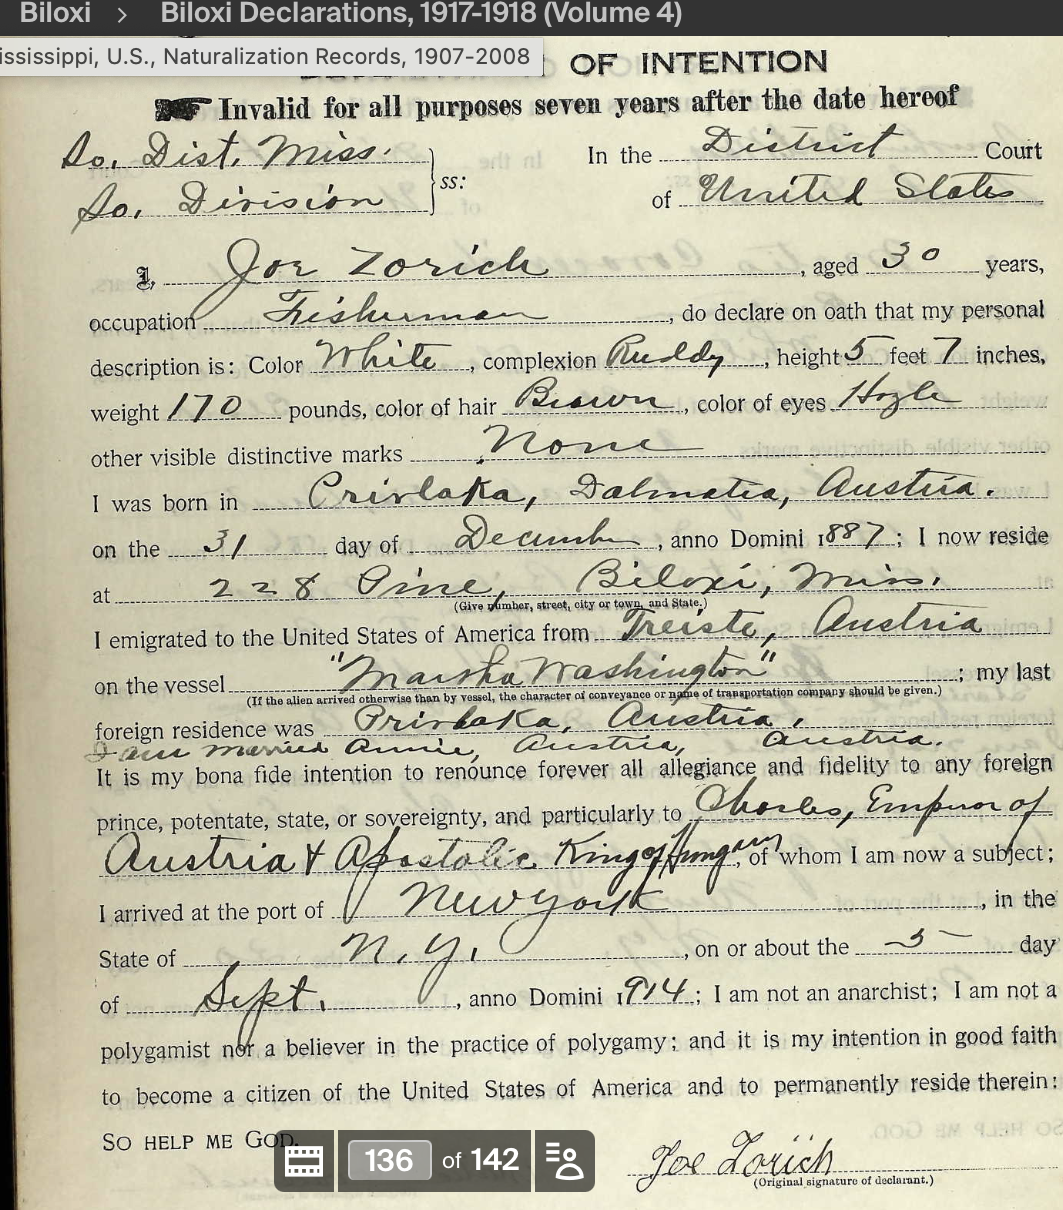 Biloxi > Biloxi Declarations, 1917-1918 (Volume 4)
ississippi, U.S., Naturalization Records, 1907-2008
OF INTENTION
Invalid for all purposes seven years after the date hereof
So. Dist. Miss. ss: In the District Court
So. Division of United States
I, Joe Zorich, aged 30 years,
occupation Fisherman, do declare on oath that my personal
description is: Color White, complexion Ruddy, height 5 feet 7 inches,
weight 170 pounds, color of hair Brown, color of eyes Hazle
other visible distinctive marks None
I was born in Privlaka, Dalmatia, Austria.
on the 31 day of December, anno Domini 1887; I now reside
at 228 Pine, Biloxi, Miss.
(Give number, street, city or town, and State.)
I emigrated to the United States of America from Treiste, Austria
on the vessel "Marsha Washington"; my last
(If the alien arrived otherwise than by vessel, the character of conveyance or name of transportation company should be given.)
foreign residence was Privlaka, Austria.
I am married Annie, Austria, Austria.
It is my bona fide intention to renounce forever all allegiance and fidelity to any foreign
prince, potentate, state, or sovereignty, and particularly to Charles, Emperor of
Austria & Apostolic King of Hungary, of whom I am now a subject;
I arrived at the port of New York, in the
State of N. Y., on or about the 5 day
of Sept., anno Domini 1914; I am not an anarchist; I am not a
polygamist nor a believer in the practice of polygamy; and it is my intention in good faith
to become a citizen of the United States of America and to permanently reside therein:
SO HELP ME GOD.
136 of 142
Joe Zorich
(Original signature of declarant.)